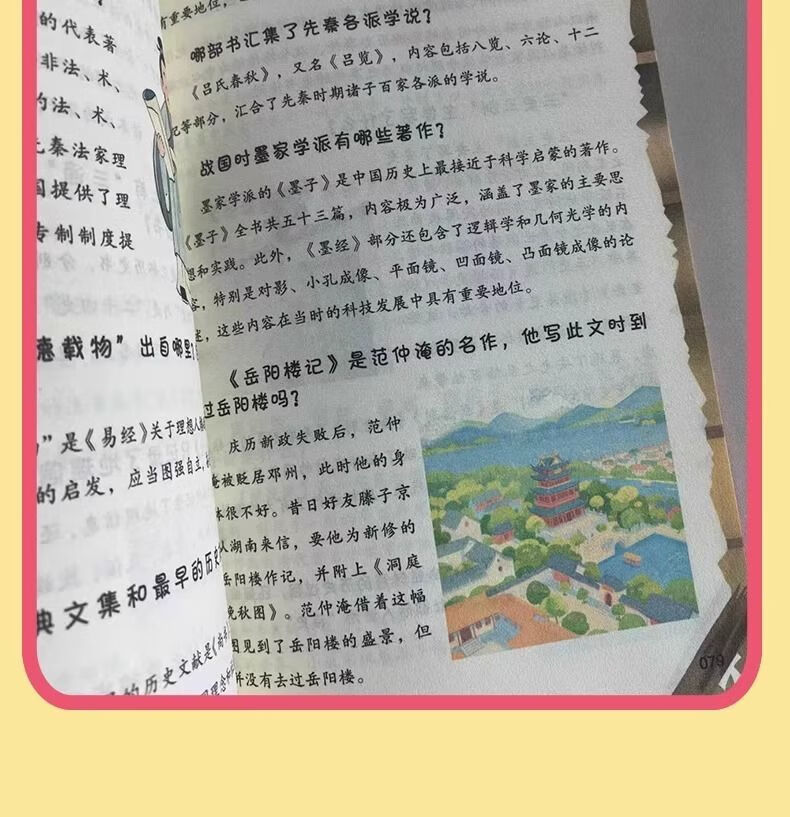 的代表著
非法、术、
的法、术、
秦法家理
国提供了理
专制制度提
德载物”出自哪里
”是《易经》关于理想人
的启发，应当图强自立，
典文集和最早的历史
的历史文献是《尚书
有重要地位，
哪部书汇集了先秦各派学说？
《吕氏春秋》，又名《吕览》，内容包括八览、六论、十二
纪等部分，汇合了先秦时期诸子百家各派的学说。
战国时墨家学派有哪些著作？
墨家学派的《墨子》是中国历史上最接近于科学启蒙的著作。
《墨子》全书共五十三篇，内容极为广泛，涵盖了墨家的主要思
想和实践。此外，《墨经》部分还包含了逻辑学和几何光学的内
容，特别是对影、小孔成像、平面镜、凹面镜、凸面镜成像的论
述，这些内容在当时的科技发展中具有重要地位。
《岳阳楼记》是范仲淹的名作，他写此文时到
过岳阳楼吗？
庆历新政失败后，范仲
淹被贬居邓州，此时他的身
体很不好。昔日好友滕子京
从湖南来信，要他为新修的
岳阳楼作记，并附上《洞庭
晚秋图》。范仲淹借着这幅
图见到了岳阳楼的盛景，但
并没有去过岳阳楼。
079